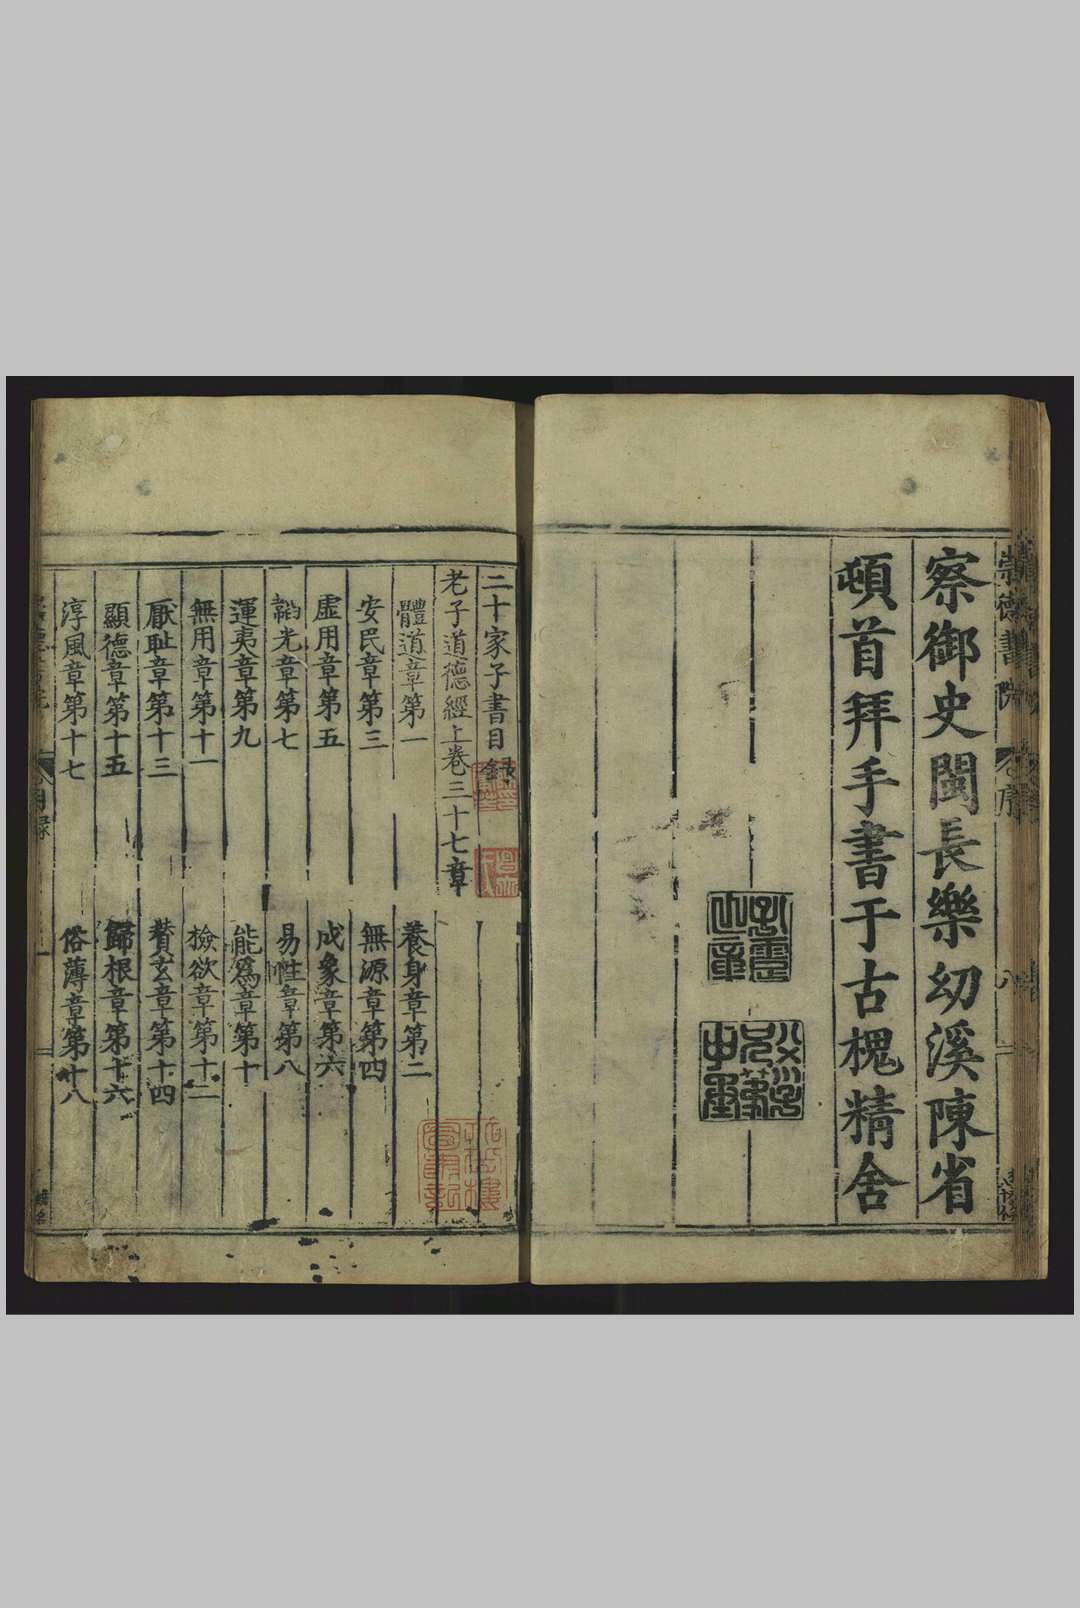 崇德書院
序
察御史閩長樂幼溪陳省
頓首拜手書于古槐精舍
二十家子書目錄
老子道德經上卷三十七章
體道章第一
養身章第二
安民章第三
無源章第四
虛用章第五
成象章第六
韜光章第七
易性章第八
運夷章第九
能爲章第十
無用章第十一
檢欲章第十二
厭恥章第十三
贊玄章第十四
顯德章第十五
歸根章第十六
淳風章第十七
俗薄章第十八
目錄